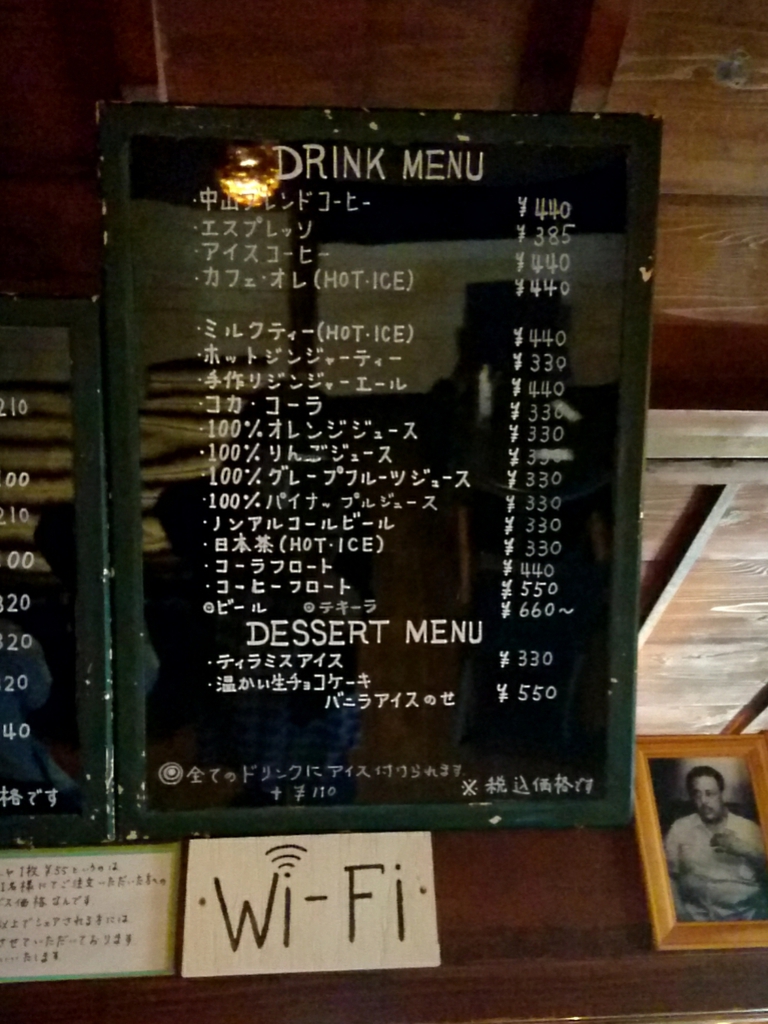 DRINK MENU
・中山ブレンドコーヒー ¥440
・エスプレッソ ¥385
・アイスコーヒー ¥440
・カフェ・オレ(HOT・ICE) ¥440
・ミルクティー(HOT・ICE) ¥440
・ホットジンジャーティー ¥330
・手作りジンジャーエール ¥440
・コカ・コーラ ¥330
・100%オレンジジュース ¥330
・100%りんごジュース ¥330
・100%グレープフルーツジュース ¥330
・100%パイナップルジュース ¥330
・ノンアルコールビール ¥330
・日本茶(HOT・ICE) ¥330
・コーラフロート ¥440
・コーヒーフロート ¥550
◎ビール ◎テキーラ ¥660〜
DESSERT MENU
・ティラミスアイス ¥330
・温かい生チョコケーキ
バニラアイスのせ ¥550
◎全てのドリンクにアイス付けられます
+¥110
※税込価格です
210
100
210
100
320
320
320
40
格です
1枚 ¥55というのは
1名様にてご注文いただいた方への
ビス価格なんです
以上でシェアされる方には
させていただいております
いたします
Wi-Fi